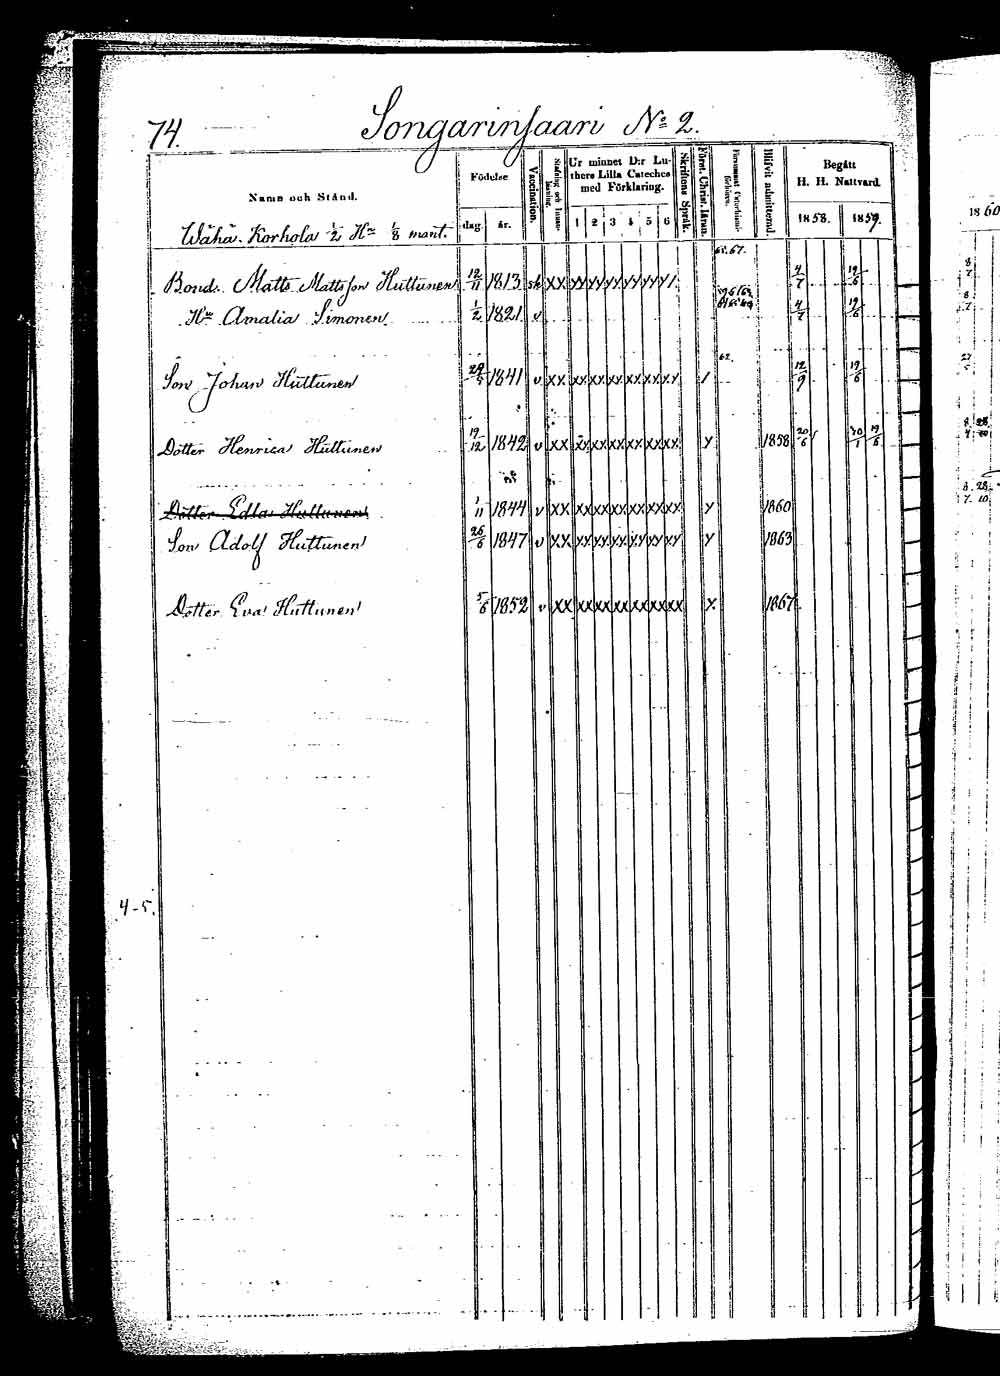 74. Songarinsaari No 2.
Namn och Stånd.
Födelse
dag. år.
Vaccination.
Ur minnet D:r Luthers Lilla Cateches med Förklaring.
1 2 3 4 5 6
Skriftens Språk.
Först. Christ. läran.
Blifvit admitterad.
Begått H. H. Nattvard.
1858. 1859.
1860
Wähä Korhola 1/2 Hn 1/8 mant.
65. 67.
Bond. Matts Mattsson Huttunen 12/11 1813 sk XX 4/7 19/6
Hu Amalia Simonen 1/2 1821 v 4/7 19/6
62.
Son Johan Huttunen 29/5 1841 v XX XX XX XX XX XX XX / 12/9 19/6
Dotter Henrica Huttunen 19/12 1842 v XX XX XX XX XX XX XX Y 1858 20/6 30/1 19/6
Dotter Edla Huttunen 1/11 1844 v XX XX XX XX XX XX XX Y 1860
Son Adolf Huttunen 26/6 1847 v XX XX XX XX XX XX XX Y 1863
Dotter Eva Huttunen 5/6 1852 v XX XX XX XX XX XX XX Y. 1867
4-5.